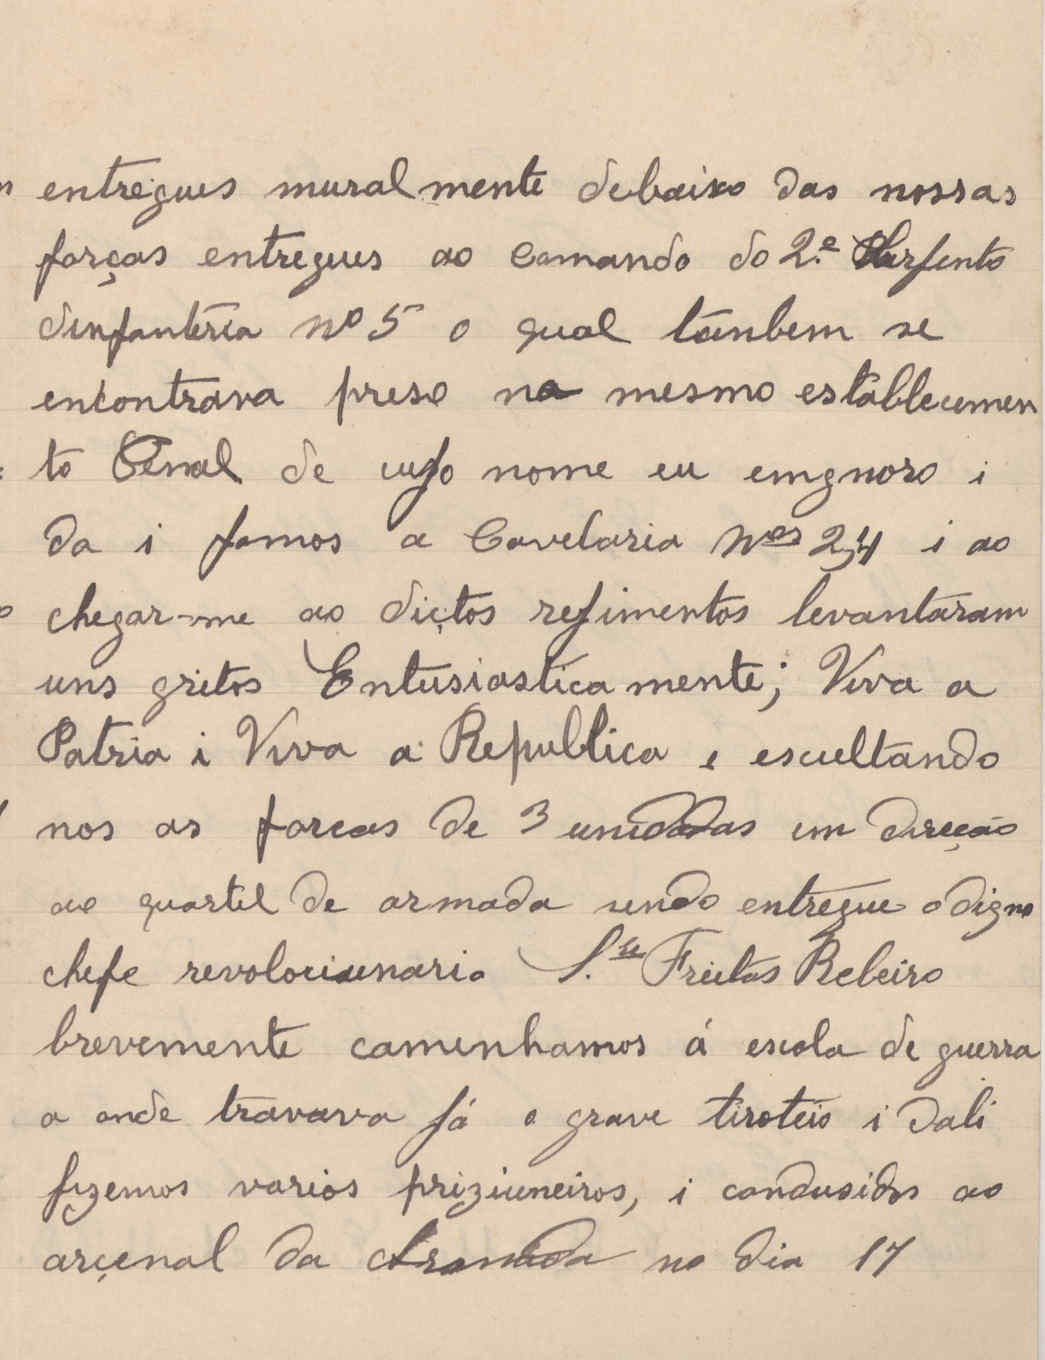 entregues muralmente debaixo das nossas
forças entregues ao comando do 2.º Sarjento
dinfanteria nº 5 o qual tãnbem se
encontrava preso na mesmo establecimen
to Penal de cujo nome eu emgnoro i
da i fomos a Cavelaria Nos 2,4 i ao
chegar-me ao dictos rejimentos levantaram
uns gritos Entusiasticamente; Viva a
Patria i Viva a Republica e escultando
nos as forcas de 3 unidadas im direção
ao quartel de armada sendo entregue o digno
chefe revolociunario S.r Freitas Rebeiro
brevemente caminhamos á escola de guerra
a onde travava já o grave tiroteio i dali
fizemos varios priziuneiros, i condusidos ao
arçenal da Armada no dia 17